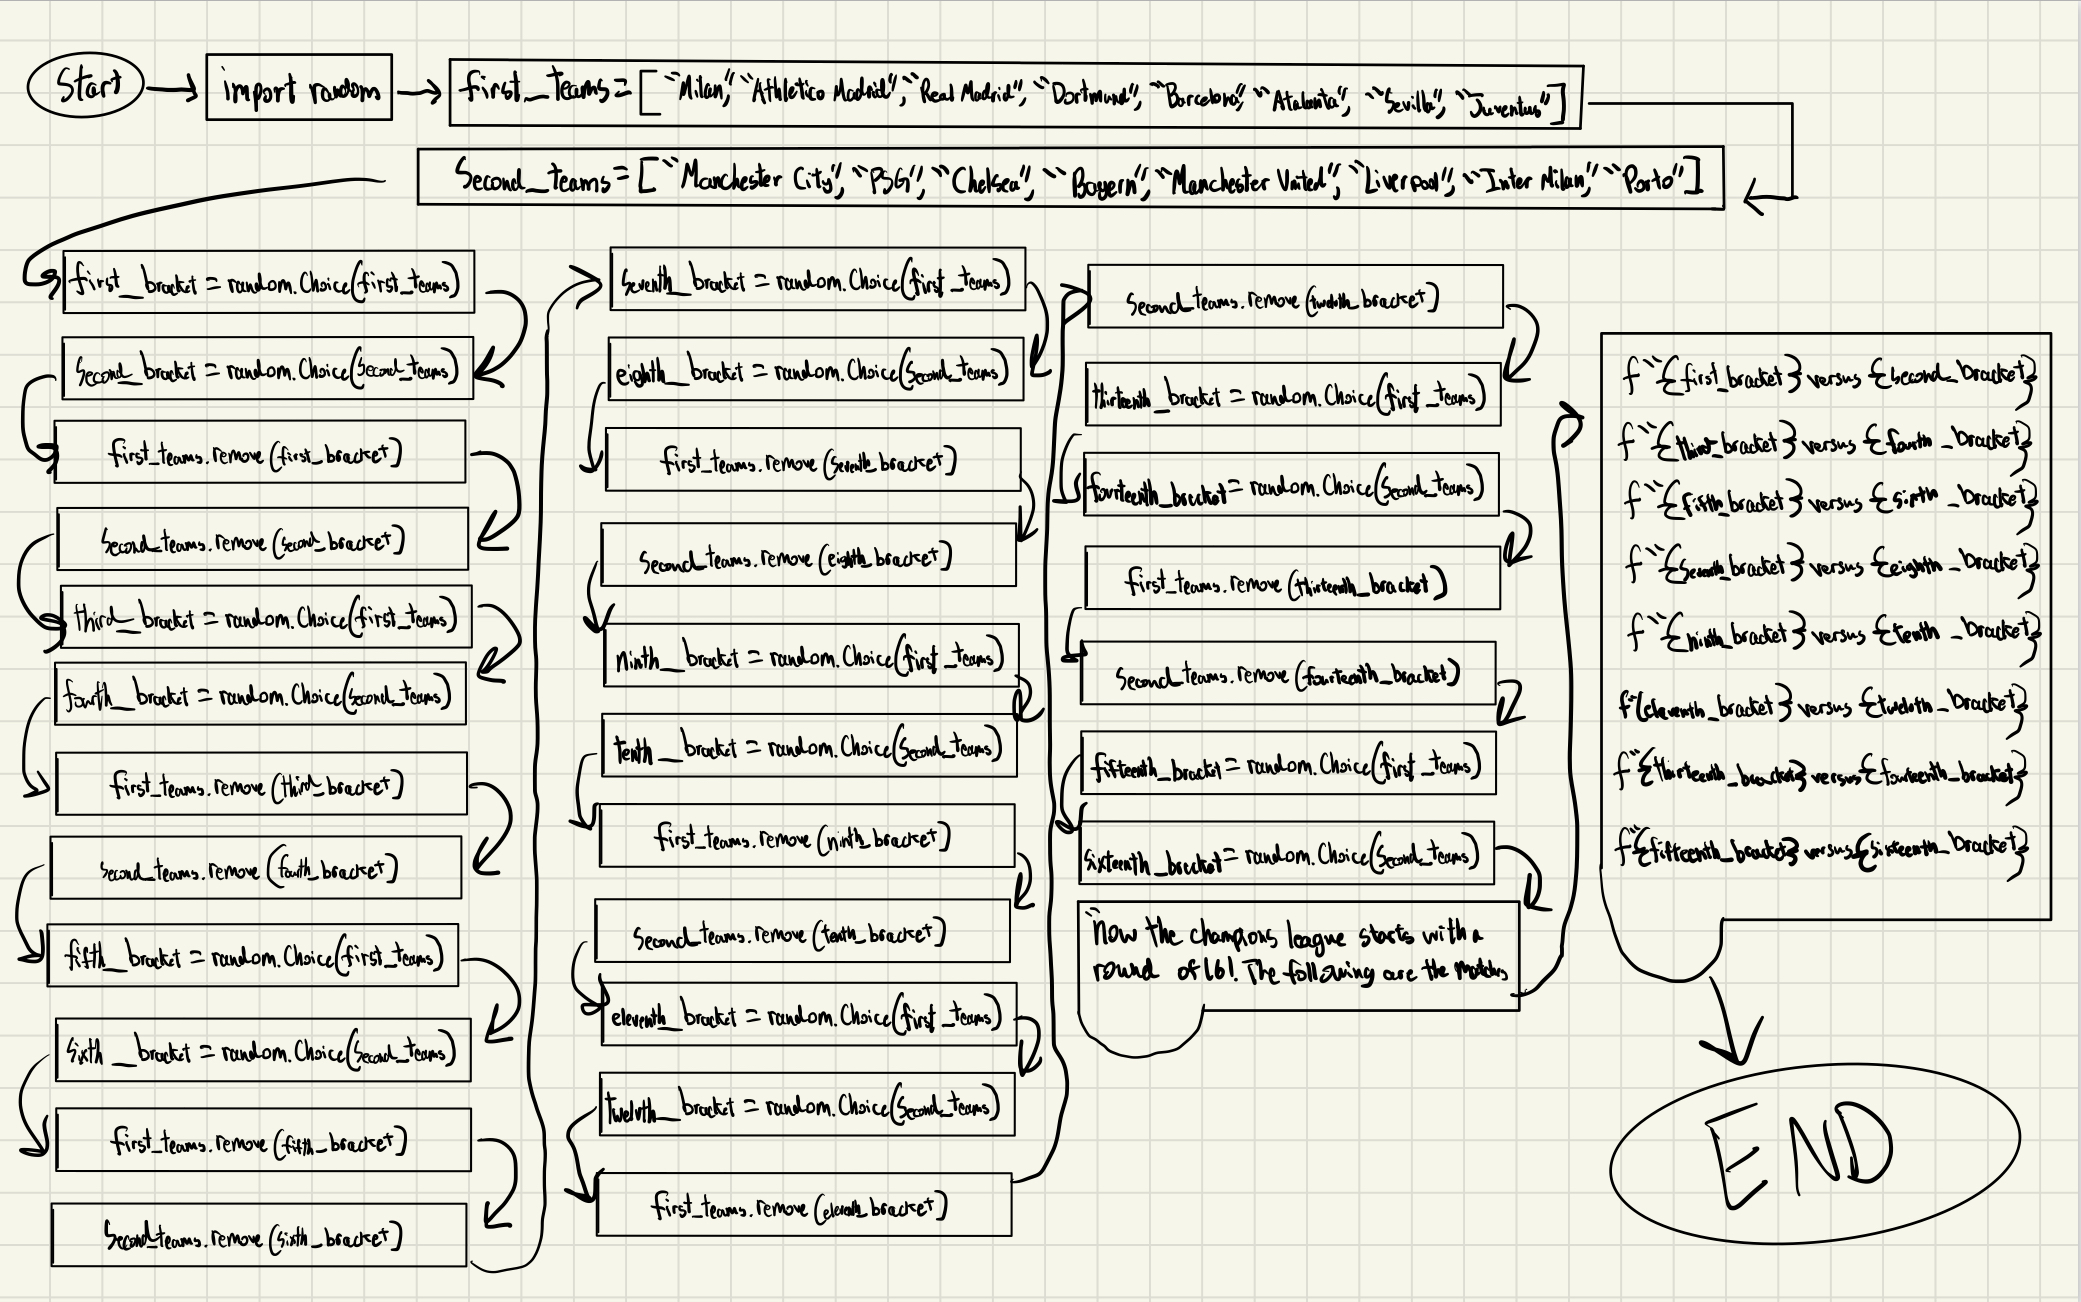 Start
import random
first_teams = ["Milan", "Athletico Madrid", "Real Madrid", "Dortmund", "Barcelona", "Atalanta", "Sevilla", "Juventus"]
Second_teams = ["Manchester City", "PSG", "Chelsea", "Bayern", "Manchester United", "Liverpool", "Inter Milan", "Porto"]
first_bracket = random.Choice(first_teams)
Second_bracket = random.Choice(Second_teams)
first_teams.remove(first_bracket)
Second_teams.remove(Second_bracket)
third_bracket = random.Choice(first_teams)
fourth_bracket = random.Choice(Second_teams)
first_teams.remove(third_bracket)
Second_teams.remove(fourth_bracket)
fifth_bracket = random.Choice(first_teams)
Sixth_bracket = random.Choice(Second_teams)
first_teams.remove(fifth_bracket)
Second_teams.remove(Sixth_bracket)
Seventh_bracket = random.Choice(first_teams)
eighth_bracket = random.Choice(Second_teams)
first_teams.remove(Seventh_bracket)
Second_teams.remove(eighth_bracket)
ninth_bracket = random.Choice(first_teams)
tenth_bracket = random.Choice(Second_teams)
first_teams.remove(ninth_bracket)
Second_teams.remove(tenth_bracket)
eleventh_bracket = random.Choice(first_teams)
twelvth_bracket = random.Choice(Second_teams)
first_teams.remove(eleventh_bracket)
Second_teams.remove(twelvth_bracket)
thirteenth_bracket = random.Choice(first_teams)
fourteenth_bracket = random.Choice(Second_teams)
first_teams.remove(thirteenth_bracket)
Second_teams.remove(fourteenth_bracket)
fifteenth_bracket = random.Choice(first_teams)
Sixteenth_bracket = random.Choice(Second_teams)
"Now the champions league starts with a
round of 16! The following are the matches
f"{first_bracket} versus {Second_bracket}
f"{third_bracket} versus {fourth_bracket}
f"{fifth_bracket} versus {sixth_bracket}
f"{Seventh_bracket} versus {eighth_bracket}
f"{ninth_bracket} versus {tenth_bracket}
f"{eleventh_bracket} versus {twelvth_bracket}
f"{thirteenth_bracket} versus {fourteenth_bracket}
f"{fifteenth_bracket} versus {Sixteenth_bracket}
END